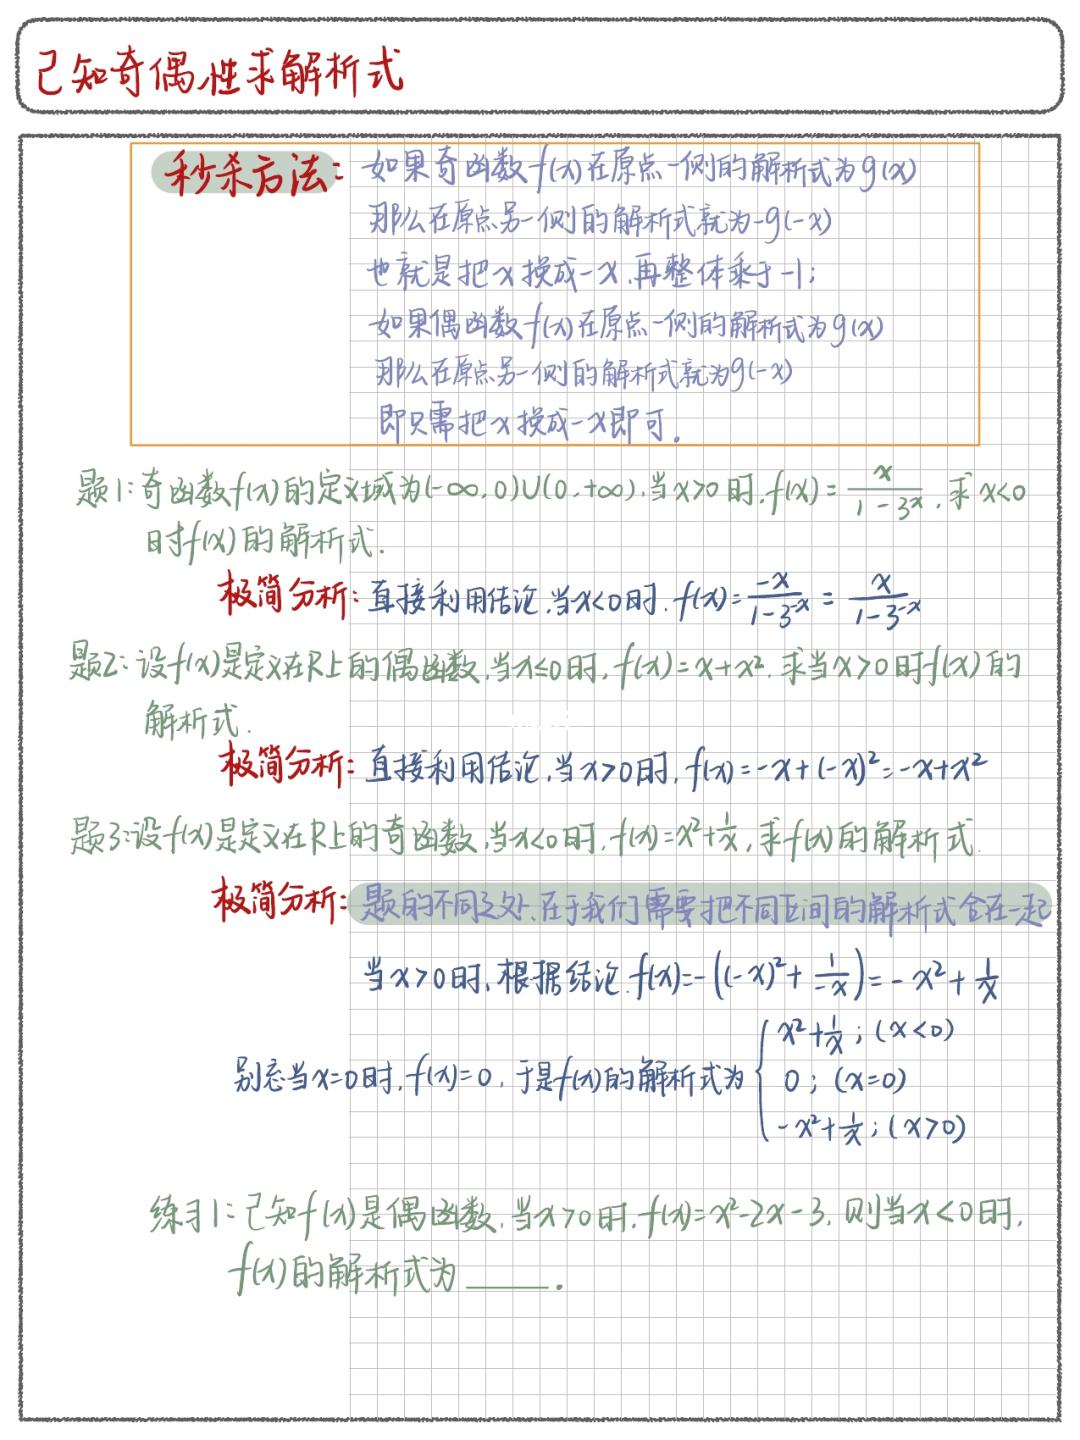 已知奇偶性求解析式
秒杀方法: 如果奇函数f(x)在原点一侧的解析式为g(x)
那么在原点另一侧的解析式就为-g(-x)
也就是把x换成-x,再整体乘于-1;
如果偶函数f(x)在原点一侧的解析式为g(x)
那么在原点另一侧的解析式就为g(-x)
即只需把x换成-x即可.
题1:奇函数f(x)的定义域为(-∞,0)∪(0,+∞),当x>0时,f(x)=x/(1-3^x),求x<0
时f(x)的解析式.
极简分析:直接利用结论,当x<0时,f(x)=-(-x)/(1-3^-x)=x/(1-3^-x)
题2:设f(x)是定义在R上的偶函数,当x≤0时,f(x)=x+x²,求当x>0时f(x)的
解析式.
极简分析:直接利用结论,当x>0时,f(x)=-x+(-x)²=-x+x²
题3:设f(x)是定义在R上的奇函数,当x<0时,f(x)=x²+1/x,求f(x)的解析式.
极简分析:题的不同之处,在于我们需要把不同区间的解析式合在一起
当x>0时,根据结论,f(x)=-((-x)²+1/-x)=-x²+1/x
别忘当x=0时,f(x)=0,于是f(x)的解析式为{x²+1/x;(x<0)
0;(x=0)
-x²+1/x;(x>0)
练习1:已知f(x)是偶函数,当x>0时,f(x)=x²-2x-3,则当x<0时,
f(x)的解析式为____.